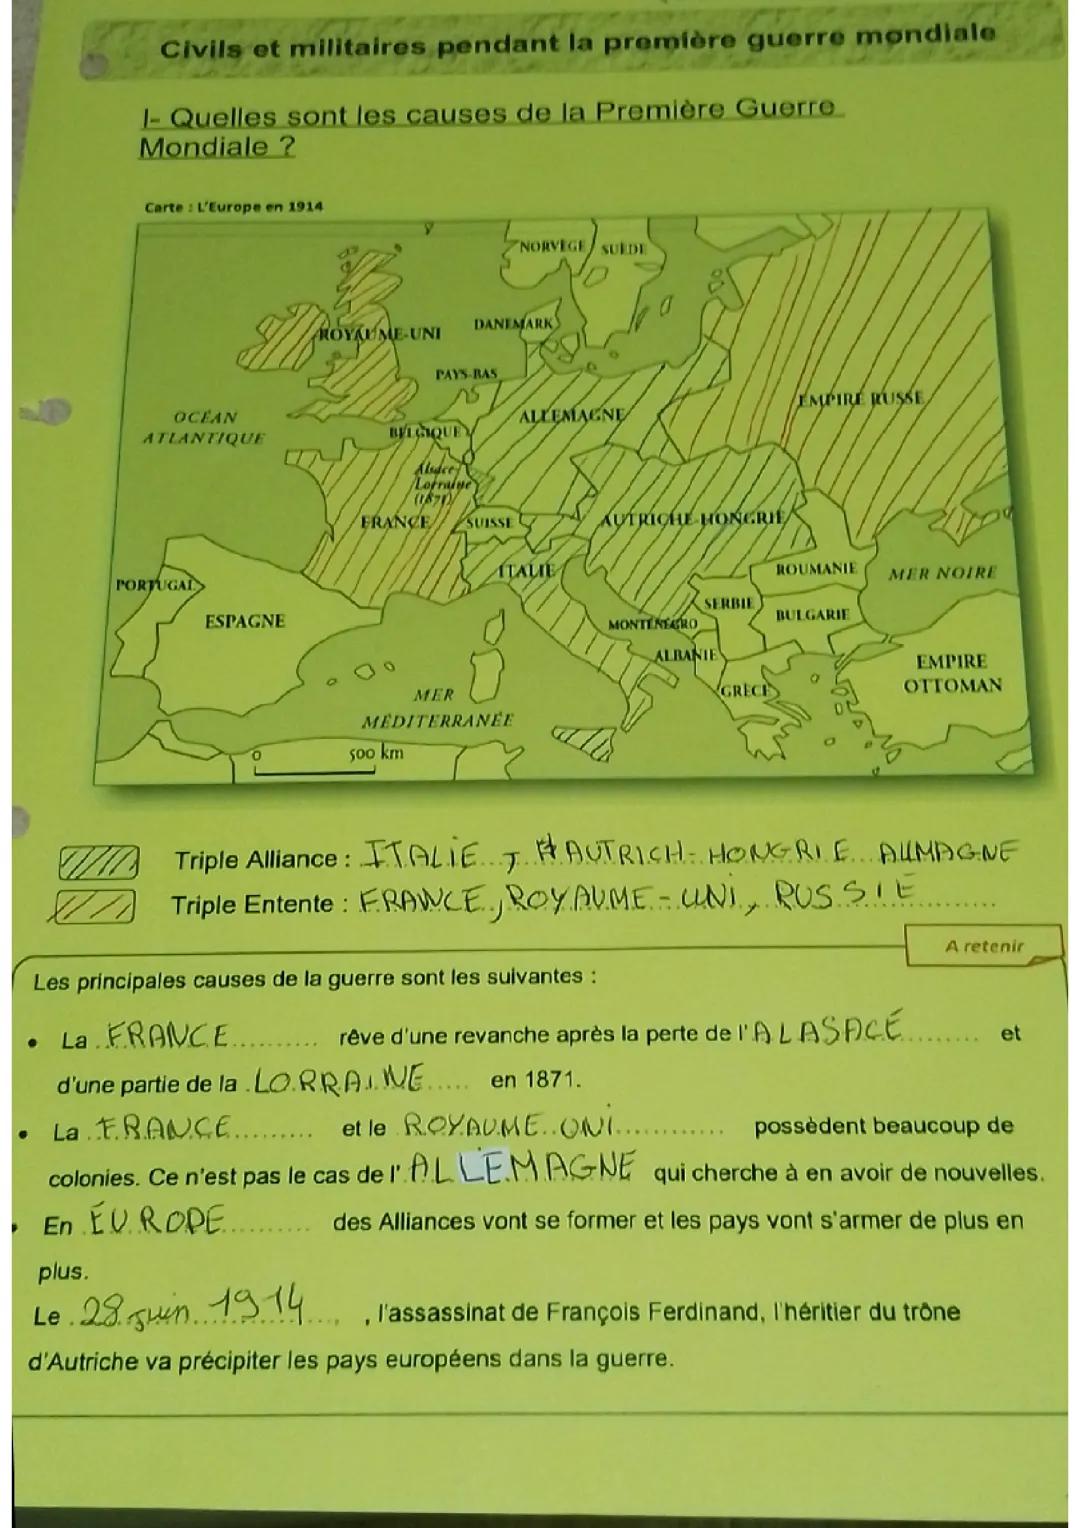 Civils et militaires pendant la première guerre mondiale
I- Quelles sont les causes de la Première Guerre
Mondiale ?
Carte : L'Europe en 1914
NORVÈGE
SUÈDE
ROYAUME-UNI
DANEMARK
PAYS-BAS
OCÉAN
ATLANTIQUE
ALLEMAGNE
EMPIRE RUSSE
BELGIQUE
Alsace-
Lorraine
(1871)
FRANCE
SUISSE
AUTRICHE-HONGRIE
ITALIE
ROUMANIE
MER NOIRE
PORTUGAL
ESPAGNE
SERBIE
BULGARIE
MONTÉNÉGRO
ALBANIE
EMPIRE
OTTOMAN
GRÈCE
MER
MÉDITERRANÉE
0
500 km
Triple Alliance : ITALIE, AUTRICH-HONGRIE ALLMAGNE
Triple Entente : FRANCE, ROYAUME-UNI, RUSSIE
A retenir
Les principales causes de la guerre sont les suivantes :
• La FRANCE rêve d'une revanche après la perte de l'ALASACE et
d'une partie de la LORRAINE en 1871.
• La FRANCE et le ROYAUME UNI possèdent beaucoup de
colonies. Ce n'est pas le cas de l'ALLEMAGNE qui cherche à en avoir de nouvelles.
• En EUROPE des Alliances vont se former et les pays vont s'armer de plus en
plus.
Le 28 juin 1914, l'assassinat de François Ferdinand, l'héritier du trône
d'Autriche va précipiter les pays européens dans la guerre.